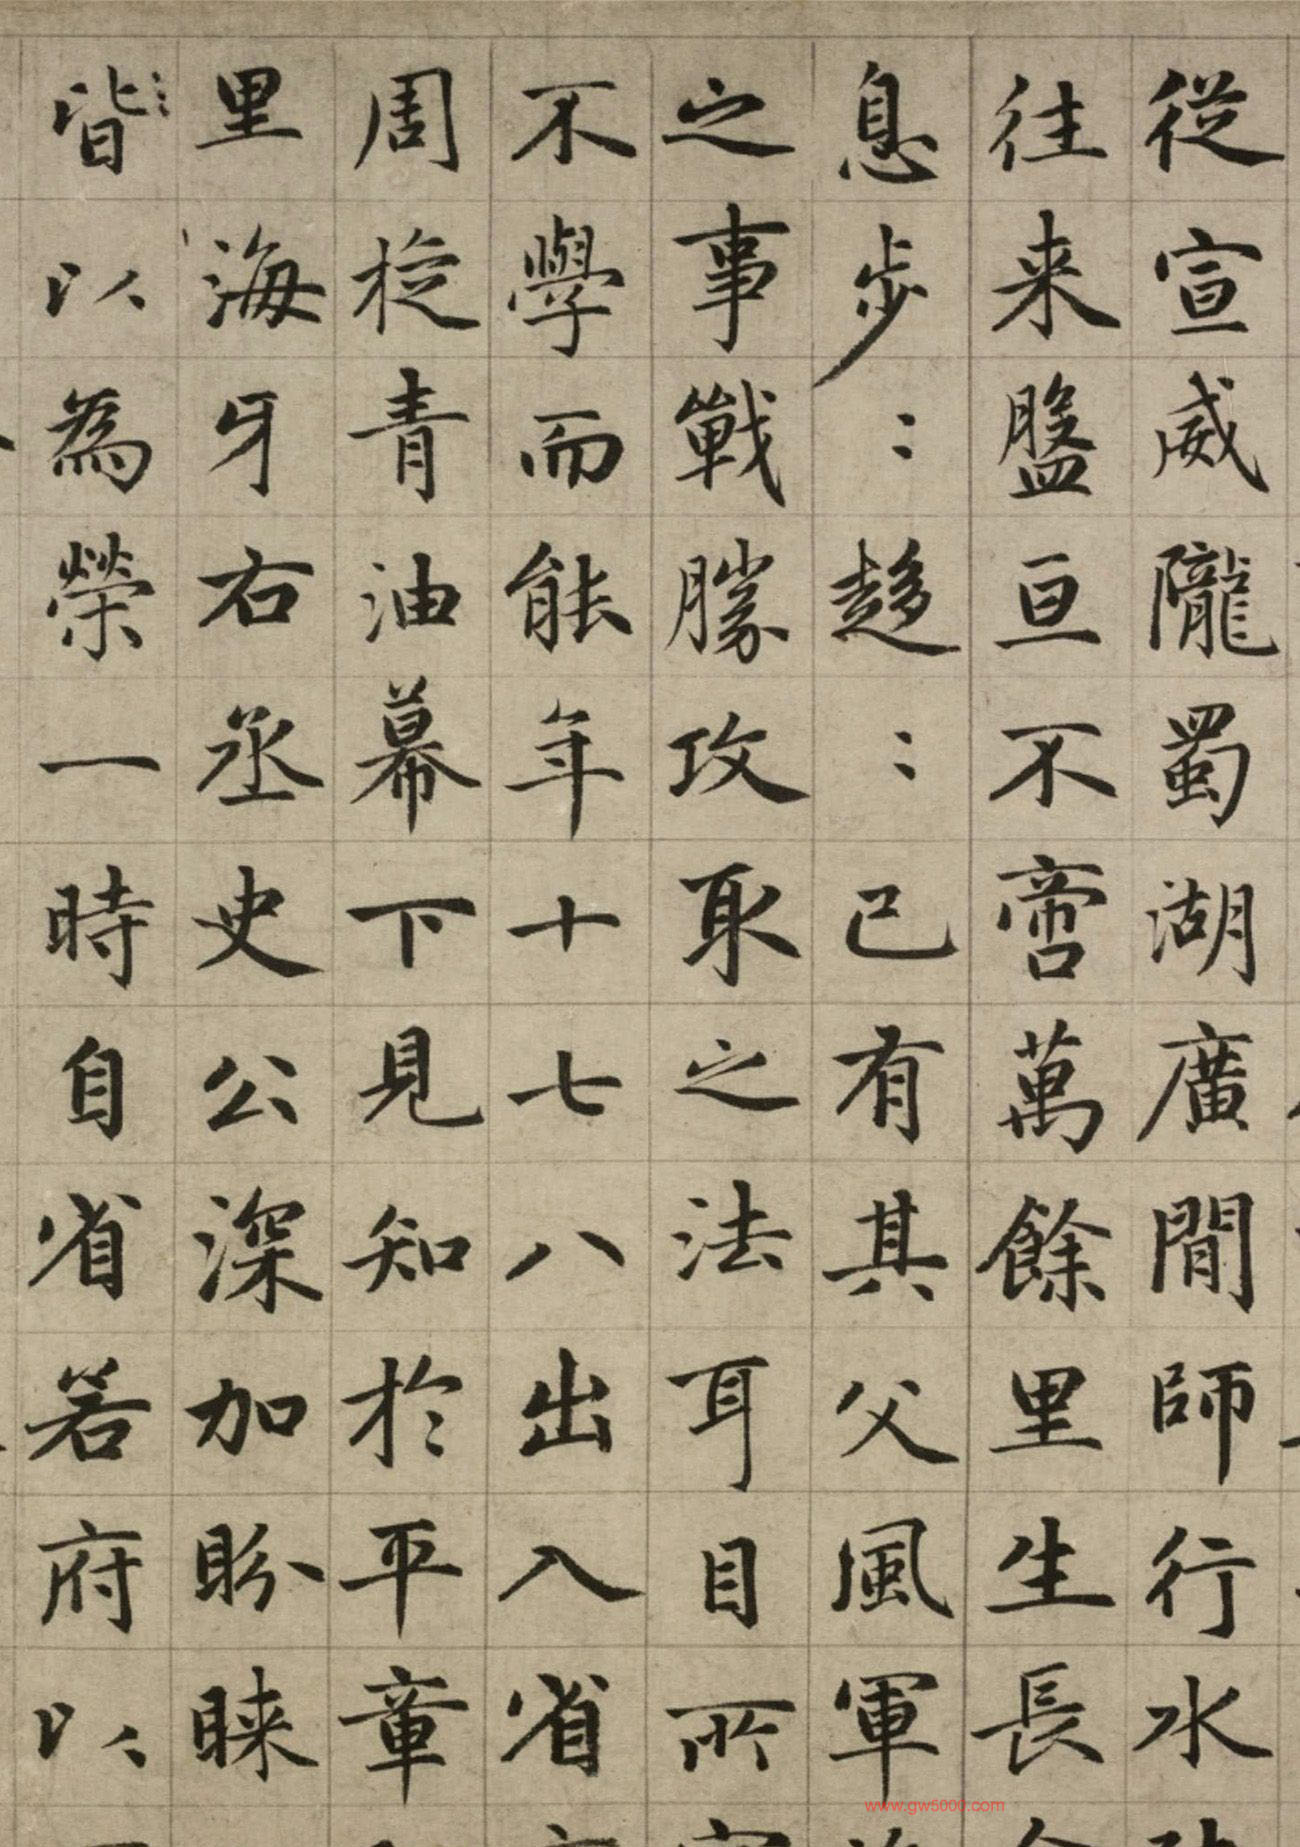 從宣威隴蜀湖廣間師行水
往来盤亘不啻萬餘里生長
息步〻趍〻已有其父風軍
之事戰勝攻取之法耳目所
不學而能年十七八出入省
周旋青油幕下見知於平章
里海牙右丞史公深加盼睞
皆以為榮一時自省若府以
www.gw5000.com